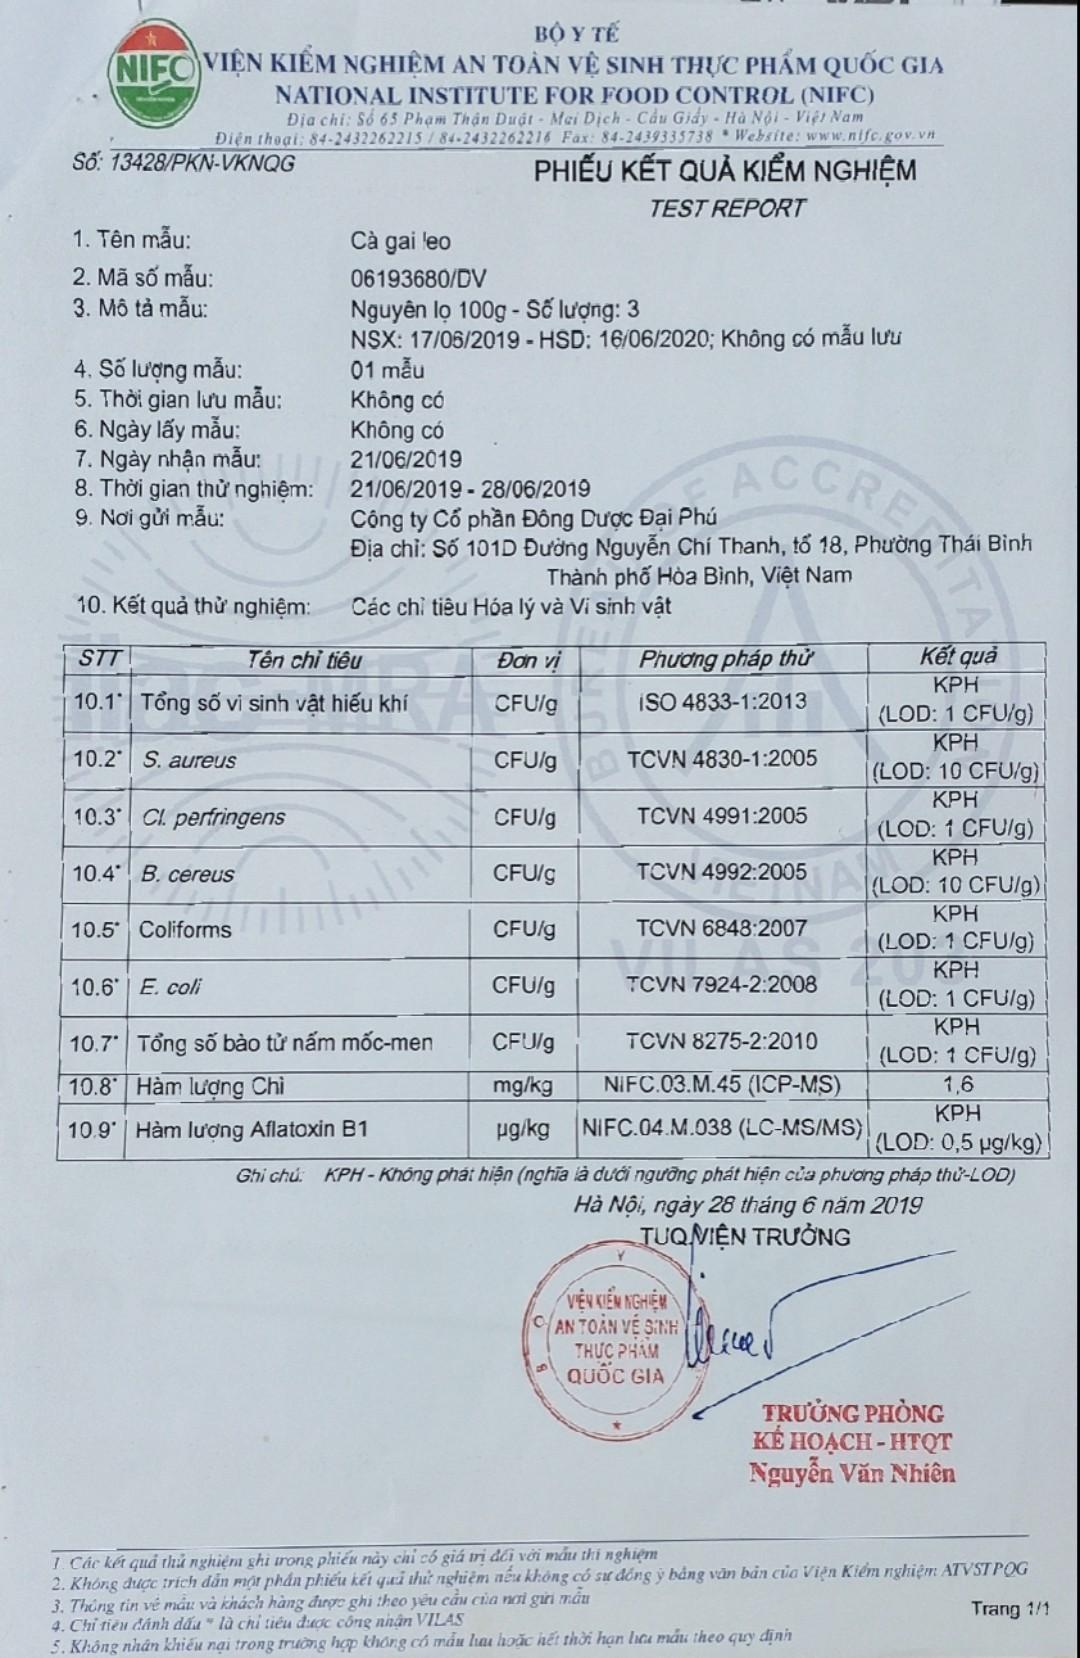 BỘ Y TẾ
NIFC
VIỆN KIỂM NGHIỆM AN TOÀN VỆ SINH THỰC PHẨM QUỐC GIA
NATIONAL INSTITUTE FOR FOOD CONTROL (NIFC)
Địa chỉ: Số 65 Phạm Thận Duật - Mai Dịch - Cầu Giấy - Hà Nội - Việt Nam
Điện thoại: 84-2432262215 / 84-2432262216 Fax: 84-2439335738 * Website: www.nifc.gov.vn
Số: 13428/PKN-VKNQG
PHIẾU KẾT QUẢ KIỂM NGHIỆM
TEST REPORT
1. Tên mẫu: Cà gai leo
2. Mã số mẫu: 06193680/DV
3. Mô tả mẫu: Nguyên lọ 100g - Số lượng: 3
NSX: 17/06/2019 - HSD: 16/06/2020; Không có mẫu lưu
4. Số lượng mẫu: 01 mẫu
5. Thời gian lưu mẫu: Không có
6. Ngày lấy mẫu: Không có
7. Ngày nhận mẫu: 21/06/2019
8. Thời gian thử nghiệm: 21/06/2019 - 28/06/2019
9. Nơi gửi mẫu: Công ty Cổ phần Đông Dược Đại Phú
Địa chỉ: Số 101D Đường Nguyễn Chí Thanh, tổ 18, Phường Thái Bình
Thành phố Hòa Bình, Việt Nam
10. Kết quả thử nghiệm: Các chỉ tiêu Hóa lý và Vi sinh vật
STT Tên chỉ tiêu Đơn vị Phương pháp thử Kết quả
10.1* Tổng số vi sinh vật hiếu khí CFU/g ISO 4833-1:2013 KPH
(LOD: 1 CFU/g)
10.2* S. aureus CFU/g TCVN 4830-1:2005 KPH
(LOD: 10 CFU/g)
10.3* Cl. perfringens CFU/g TCVN 4991:2005 KPH
(LOD: 1 CFU/g)
10.4* B. cereus CFU/g TCVN 4992:2005 KPH
(LOD: 10 CFU/g)
10.5* Coliforms CFU/g TCVN 6848:2007 KPH
(LOD: 1 CFU/g)
10.6* E. coli CFU/g TCVN 7924-2:2008 KPH
(LOD: 1 CFU/g)
10.7* Tổng số bào tử nấm mốc-men CFU/g TCVN 8275-2:2010 KPH
(LOD: 1 CFU/g)
10.8* Hàm lượng Chì mg/kg NIFC.03.M.45 (ICP-MS) 1,6
10.9* Hàm lượng Aflatoxin B1 µg/kg NIFC.04.M.038 (LC-MS/MS) KPH
(LOD: 0,5 µg/kg)
Ghi chú: KPH - Không phát hiện (nghĩa là dưới ngưỡng phát hiện của phương pháp thử-LOD)
Hà Nội, ngày 28 tháng 6 năm 2019
TUQ.VIỆN TRƯỞNG
BỘ Y
VIỆN KIỂM NGHIỆM
AN TOÀN VỆ SINH
THỰC PHẨM
QUỐC GIA
TRƯỞNG PHÒNG
KẾ HOẠCH - HTQT
Nguyễn Văn Nhiên
BUREAU OF ACCREDITATION
VIETNAM
ilac-MRA
1. Các kết quả thử nghiệm ghi trong phiếu này chỉ có giá trị đối với mẫu thí nghiệm
2. Không được trích dẫn một phần phiếu kết quả thử nghiệm nếu không có sự đồng ý bằng văn bản của Viện Kiểm nghiệm ATVSTPQG
3. Thông tin về mẫu và khách hàng được ghi theo yêu cầu của nơi gửi mẫu
4. Chỉ tiêu đánh dấu * là chỉ tiêu được công nhận VILAS
5. Không nhận khiếu nại trong trường hợp không có mẫu lưu hoặc hết thời hạn lưu mẫu theo quy định
Trang 1/1